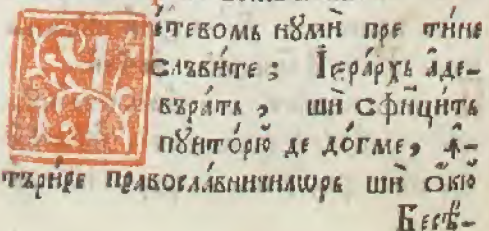 Чѐтевомь нꙋмѝ пре ти́не
слъви́те; Їера́рхъ а҆де-
въра́тъ, шѝ сфи҃нци́тъ
пꙋито́рю̆ де до́гме, ꙟ҆-
търи́ре правосла́вничилѡрь шѝ о҆́кю
Бесѣ́-